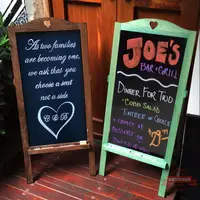 As two families
are becoming one,
we ask that you
choose a seat
not a side.
C & B
JOE'S
BAR + GRILL
DINNER FOR TWO
CAESAR SALAD
ENTREE OF
CHOICE
DESSERT